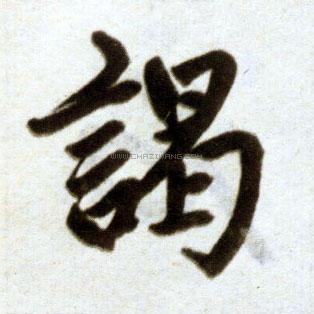 謁
WWW.CHAZIWANG.COM